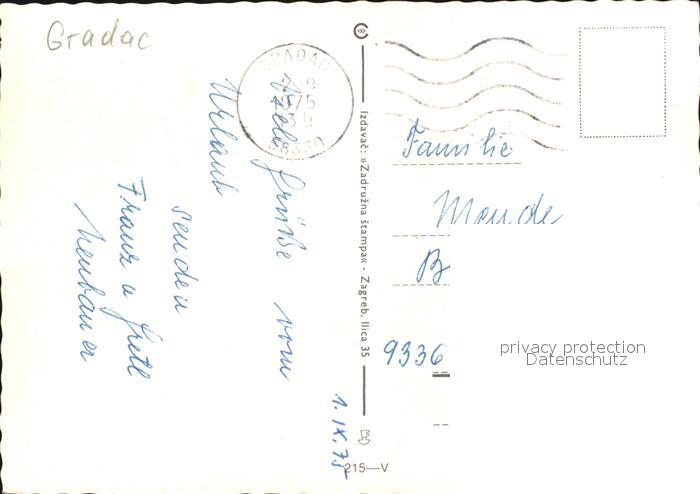 Gradac
GRADAC
58330
Viele Grüße vom
Urlaub
senden
Franz u Gretl
Neubauer
1. IX. 75
Izdavač: »Zadružna štampa« - Zagreb, Ilica 35
215—V
Familie
B
9336
privacy protection
Datenschutz